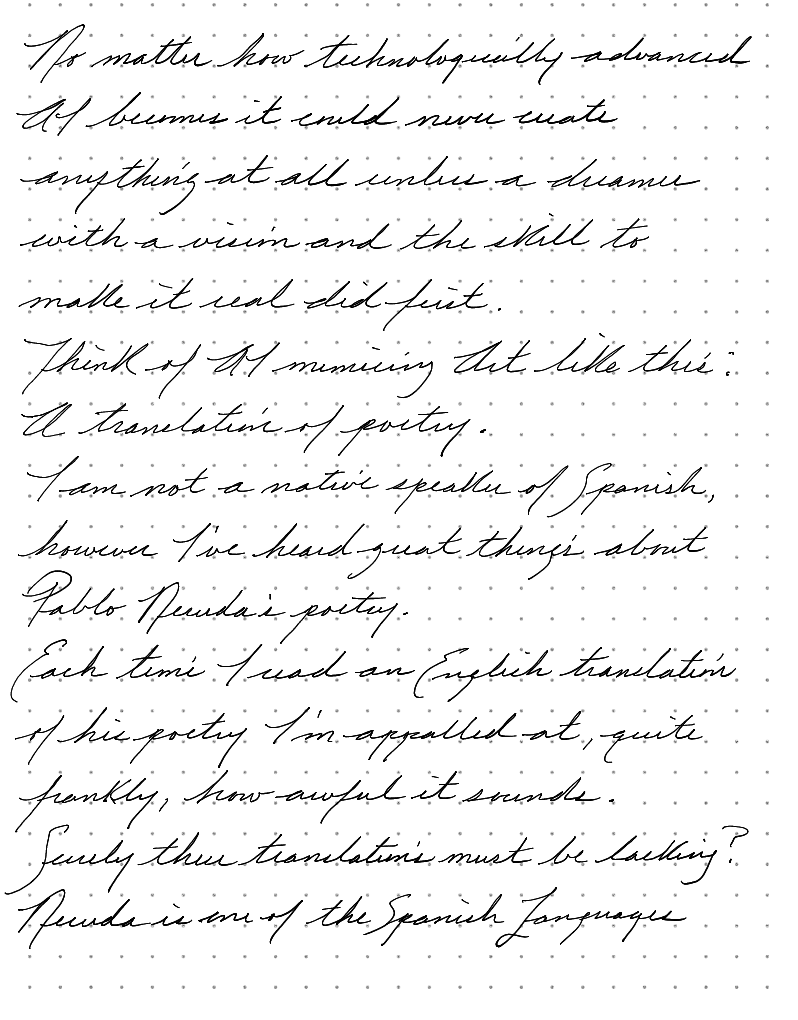 No matter how technologically advanced
AI becomes it could never create
anything at all unless a dreamer
with a vision and the skill to
make it real did first.
Think of AI mimicing Art like this:
A translation of poetry.
I am not a native speaker of Spanish,
however I've heard great things about
Pablo Neruda's poetry.
Each time I read an English translation
of his poetry I'm appalled at, quite
frankly, how awful it sounds.
Surely these translations must be lacking?
Neruda is one of the Spanish Languages